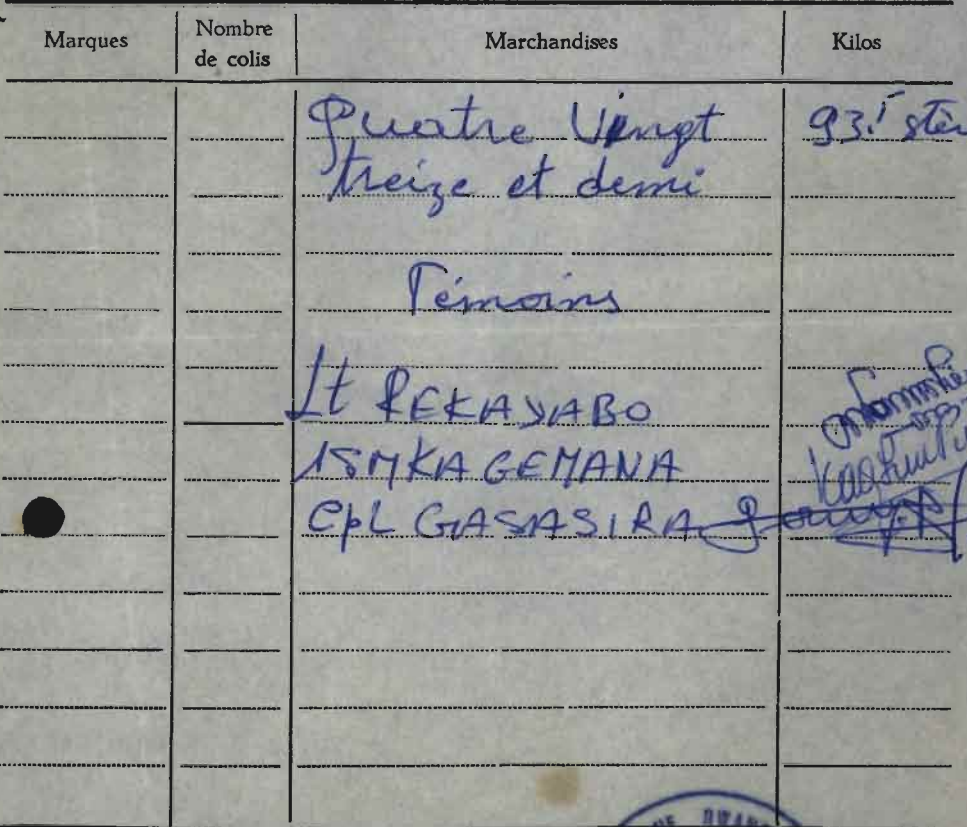 Marques Nombre de colis Marchandises Kilos
Quatre Vingt 93.5 stèr
treize et demi
Témoins
Lt REKAYABO
1SM KAGEMANA
Cpl GASASIRA